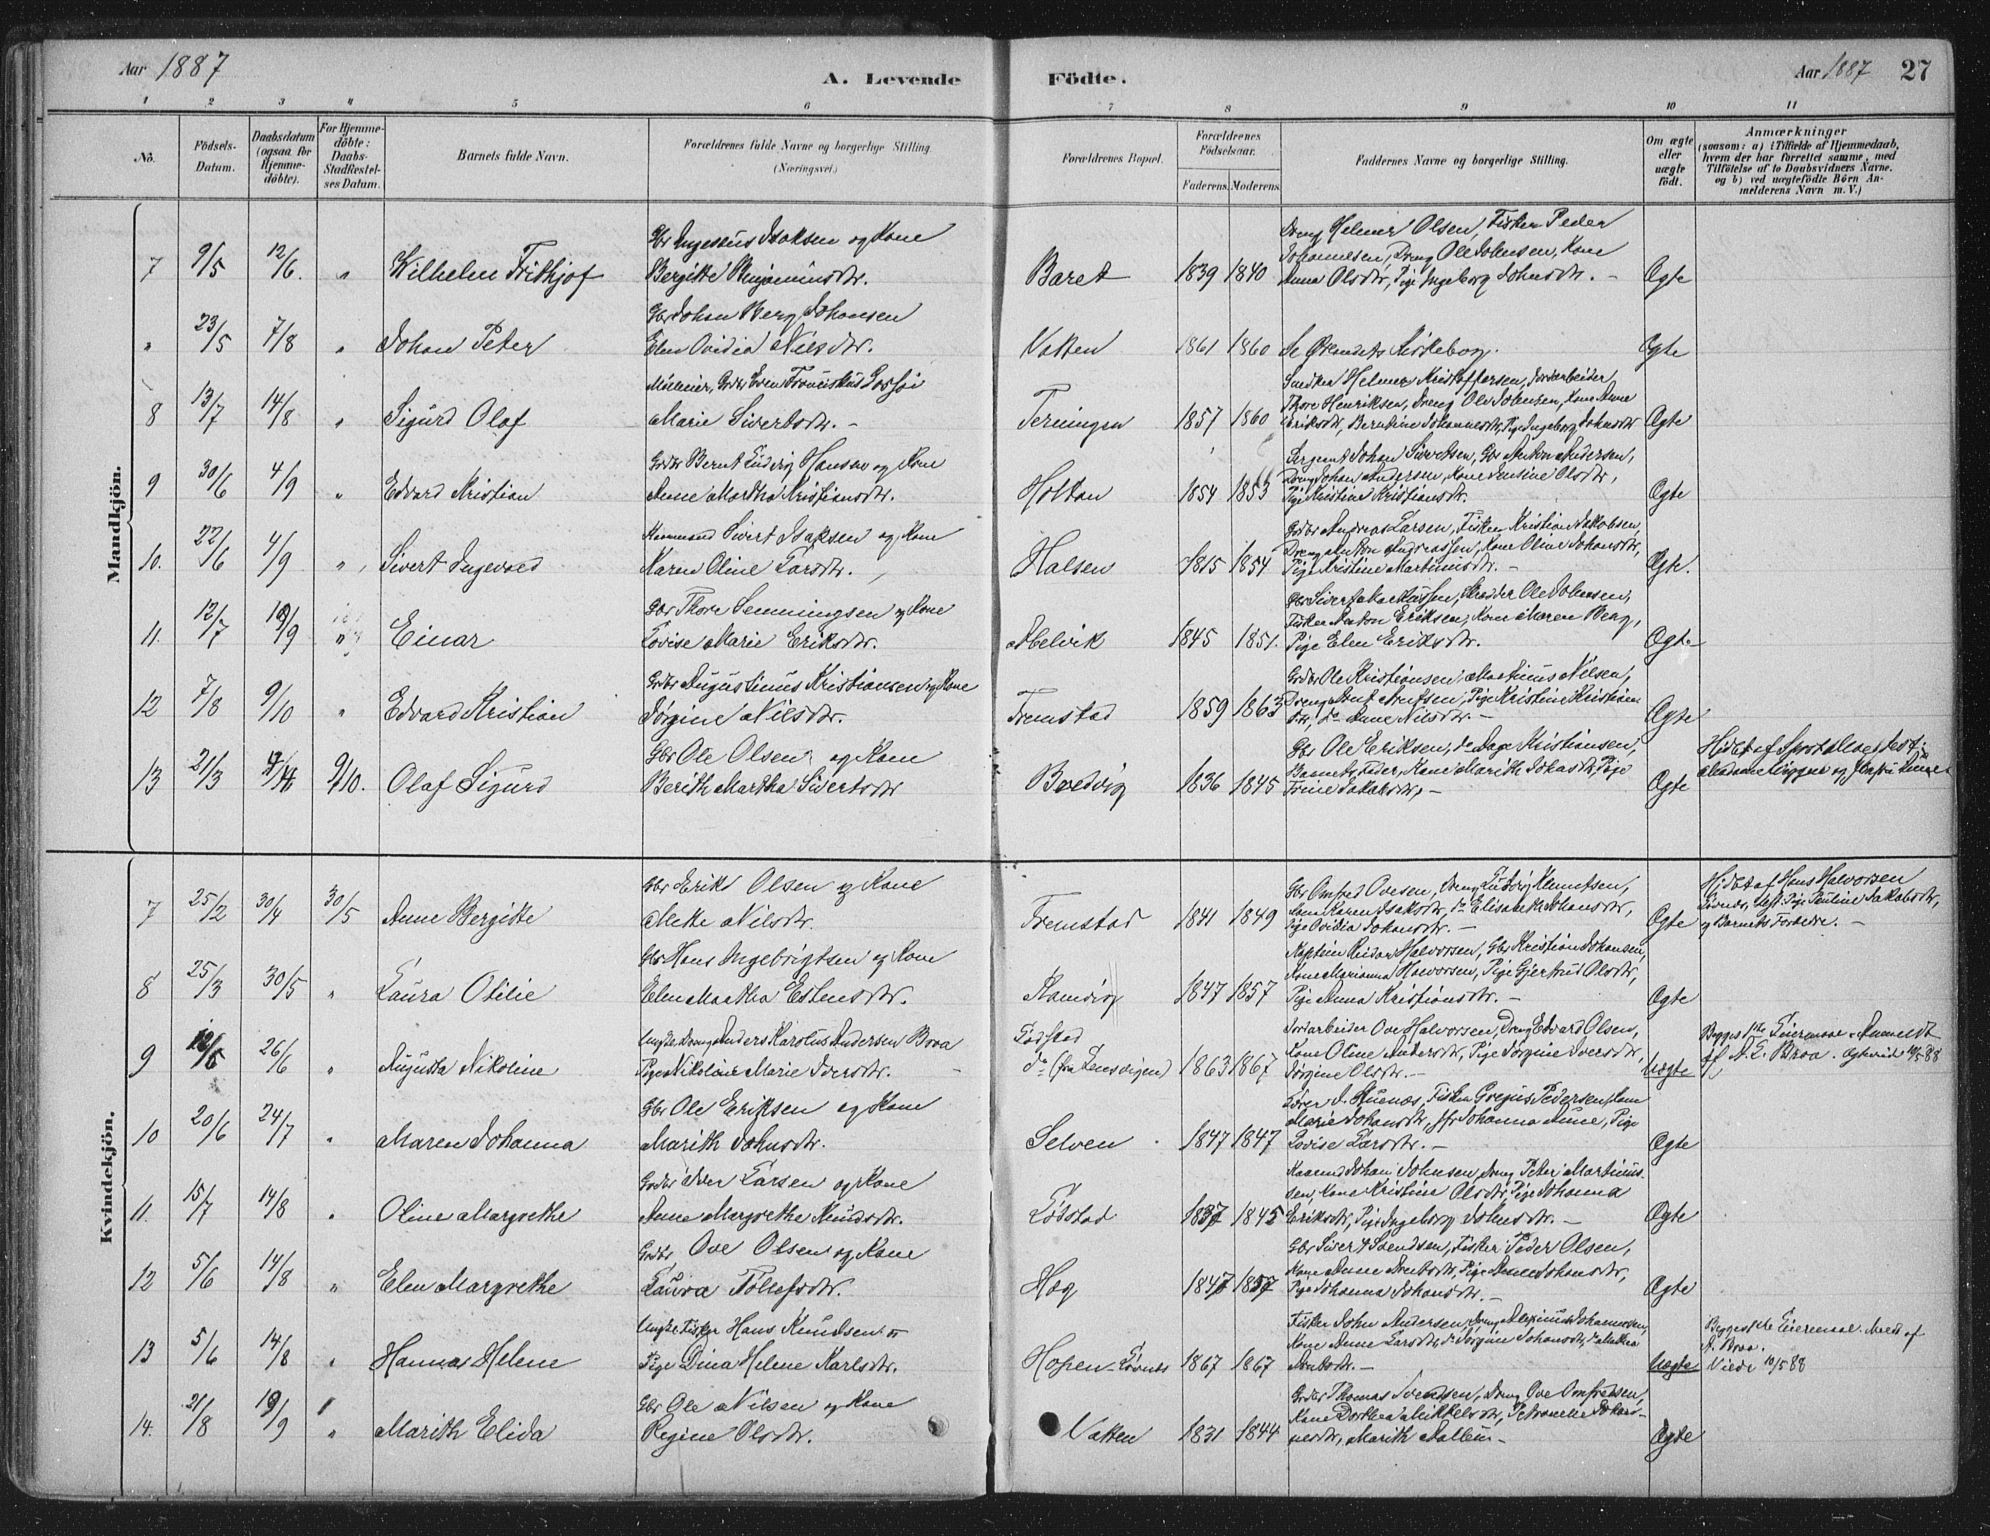 Aar 1887
A. Levende
Födte.
Aar 1887 27
1 2 3 4 5 6 7 8 9 10 11
No.
Födsels-
Datum.
Daabsdatum
(ogsaa for
Hjemme-
döbte).
For Hjemme-
döbte:
Daabs-
Stadfæstel-
ses Datum.
Barnets fulde Navn.
Forældrenes fulde Navne og borgerlige Stilling
(Næringsvei.)
Forældrenes Bopæl.
Forældrenes
Födselsaar.
Faderens. Moderens.
Faddernes Navne og borgerlige Stilling.
Om ægte
eller
uægte
födt.
Anmærkninger
(saasom: a) i Tilfælde af Hjemmedaab,
hvem der har forrettet samme, med
Tilföielse af to Daabsvidners Navne.
og b) ved uægtefödte Börn An-
melderens Navn m. V.)
Mandkjön.
7 9/5 12/6. " Wilhelm Frithjof
Isaksen og Kone
Bergitte Benjaminsdr.
Baret 1839 1840
Dreng Helmer Olsen, Fisker Peder
Johannesen, Dreng Ole Johnsen, Kone
Anna Olsdtr, Pige Ingeborg Johnsdtr. Ægte
" 23/5 7/8 " Johan Peter
Gbr Johan Berg Johansen
Elen Ovidia Nilsdtr.
Vatten 1861 1860 Kirkebog. Ægte
8 13/7 14/8 " Sigurd Olaf
Marie Sivertsdtr.
Terningen 1857 1860
Helmer Kristoffersen, Jordarbeider
Thore Henriksen, Dreng Ole Johnsen, Kone Anne
Eriksdtr, Berntine Johannesdtr, Pige Ingeborg Johnsdtr Ægte
9 30/6 4/9 " Edvard Kristian
Bernt Ludvig Hansen og Kone
Anne Martha Kristiansdtr.
Holtan 1854 1853
Sergeant Johan Sivertsen, Gbr Anton Andersen,
Dreng Johan Andersen, Kone Olsdtr,
Pige Kristine Kristiansdtr. Ægte
10. 22/6 4/9 " Sivert Ingevald
Sivert Isaksen og Kone
Karen Oline Larsdtr.
Halsen 1815 1854
Andreas Larsen, Fisker Kristian Jakobsen,
Dreng Anton Andreassen, Kone Oline Johansdtr,
Pige Kristine Martinusdtr. Ægte.
11. 12/7 /9 " Einar
Gbr Thore Semmingsen og Kone
Lovise Marie Eriksdtr.
Abelvik 1845 1851.
Gbr Sivert, Skredder Ole Johnsen,
Fisker Anton Eriksen, Kone Maren Berg,
Pige Elen Eriksdtr. Ægte
12 7/8 9/10 " Edvard Kristian
Augustinus Kristiansen og Kone
Jørgine Nilsdtr.
Fremstad 1859 1863
Ole Kristiansen, Martinus Nilsen,
Dreng Arnt Arntsen, Pige Kristine Kristian
dtr, do Anne Nilsdtr. Ægte
13 21/3 9/10. Olaf Sigurd
Gbr Ole Olsen og Kone
Berith Martha Sivertsdtr
Bredvig 1836 1845
Gbr Ole Eriksen, do Dage Kristiansen,
Barnets Fader, Kone Marith Johnsdtr, Pige
Trine Jakobsdtr, Ægte
Hjdbt af
Kvindekjön.
7 25/2 30/4 30/5 Anne Bergitte
Gbr Erik Olsen og Kone
Mette Nilsdtr.
Fremstad 1841 1849
Gbr Omfred Ovesen, Dreng Ludvig Klemetsen,
Kone Karen Isaksdtr, do Elisabeth Johansdtr,
Pige Ovidia Johansdtr. Ægte
Hjdbt af Hans Halvorsen
Pige Pauline Jakobsdtr,
og Barnets Forældre.
8 25/3 30/5 " Laura Otilie
Gbr Hans Ingebrigtsen og Kone
Elen Martha Estensdtr.
Ramvig 1847 1857
Kaptein Reidar Halvorsen, Gbr Kristian Johansen,
Kone Marianna Halvorsen, Pige Gjertrud Olsdtr,
Pige Anna Kristiansdtr. Ægte
9 26/6 Augusta Nikoline
Ungk. Dreng Anders Karolus Andersen Broa
Pige Nikoline Marie Iversdtr.
Lodstad
do (fra Lensvigen) 1863 1867
Jordarbeider Ove Halvorsen, Dreng Edvard Olsen,
Kone Oline Andersdtr, Pige Jørgine Iversdtr,
Jørgine Olsdtr. Uægte
Begges 1ste Leiermaal. Anmeldt
af A. L. Broa.
10 20/6 24/7 " Maren Johanna
Gbr Ole Eriksen og Kone
Marith Johnsdtr.
Selven 1847 1847
Lærer J. Stuenæs, Fisker Gregus Pedersen, Kone
Marie Johansdtr, Jfr Johanna Aune, Pige
Lovise Larsdtr. Ægte
11. 15/7 14/8 " Oline Margrethe
Iver Larsen og Kone
Anne Margrethe Knudsdtr.
Lodstad 1837 1845
Johan Johnsen, Dreng Peter Martinus-
sen, Kone Kristine Olsdtr, Pige Johanna
Eriksdtr, Pige Ingeborg Johnsdtr. Ægte
12 5/6 14/8 " Elen Margrethe
Ove Olsen og Kone
Laura Tollefsdtr.
Hog 1847 1857
Gbr Sivert Svendsen, Fisker Peder Olsen,
Kone Anne Arntsdtr, Pige Anne Johansdtr,
Pige Johanna Johansdtr. Ægte
13 5/6 14/8 " Hanna Helene
Ungk. Fisker Hans Knudsen og
Pige Dina Helene Karlsdtr.
Hopen-Løvnes 1867 1867
Fisker John Andersen, Dreng Johannesen,
Kone Anne Larsdtr, do Jørgine Johansdtr, do Martha
Arntsdtr. Uægte
Begges 1ste Leiermaal. Meldt af
A. Broa.
Viede 10/5 88
14. 21/8 /9 " Marith Elida
Gbr Ole Nilsen og Kone
Regine Olsdtr.
Vatten 1831 1844
Thomas Svendsen, Dreng Ove Omfredsen,
Kone Dorthea Mikkelsdtr, Petronelle Johan-
nesdtr, Marith Ægte